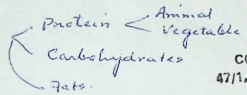 Protein < Animal
Vegetable
Carbohydrates
Fats.
CO
47/1,